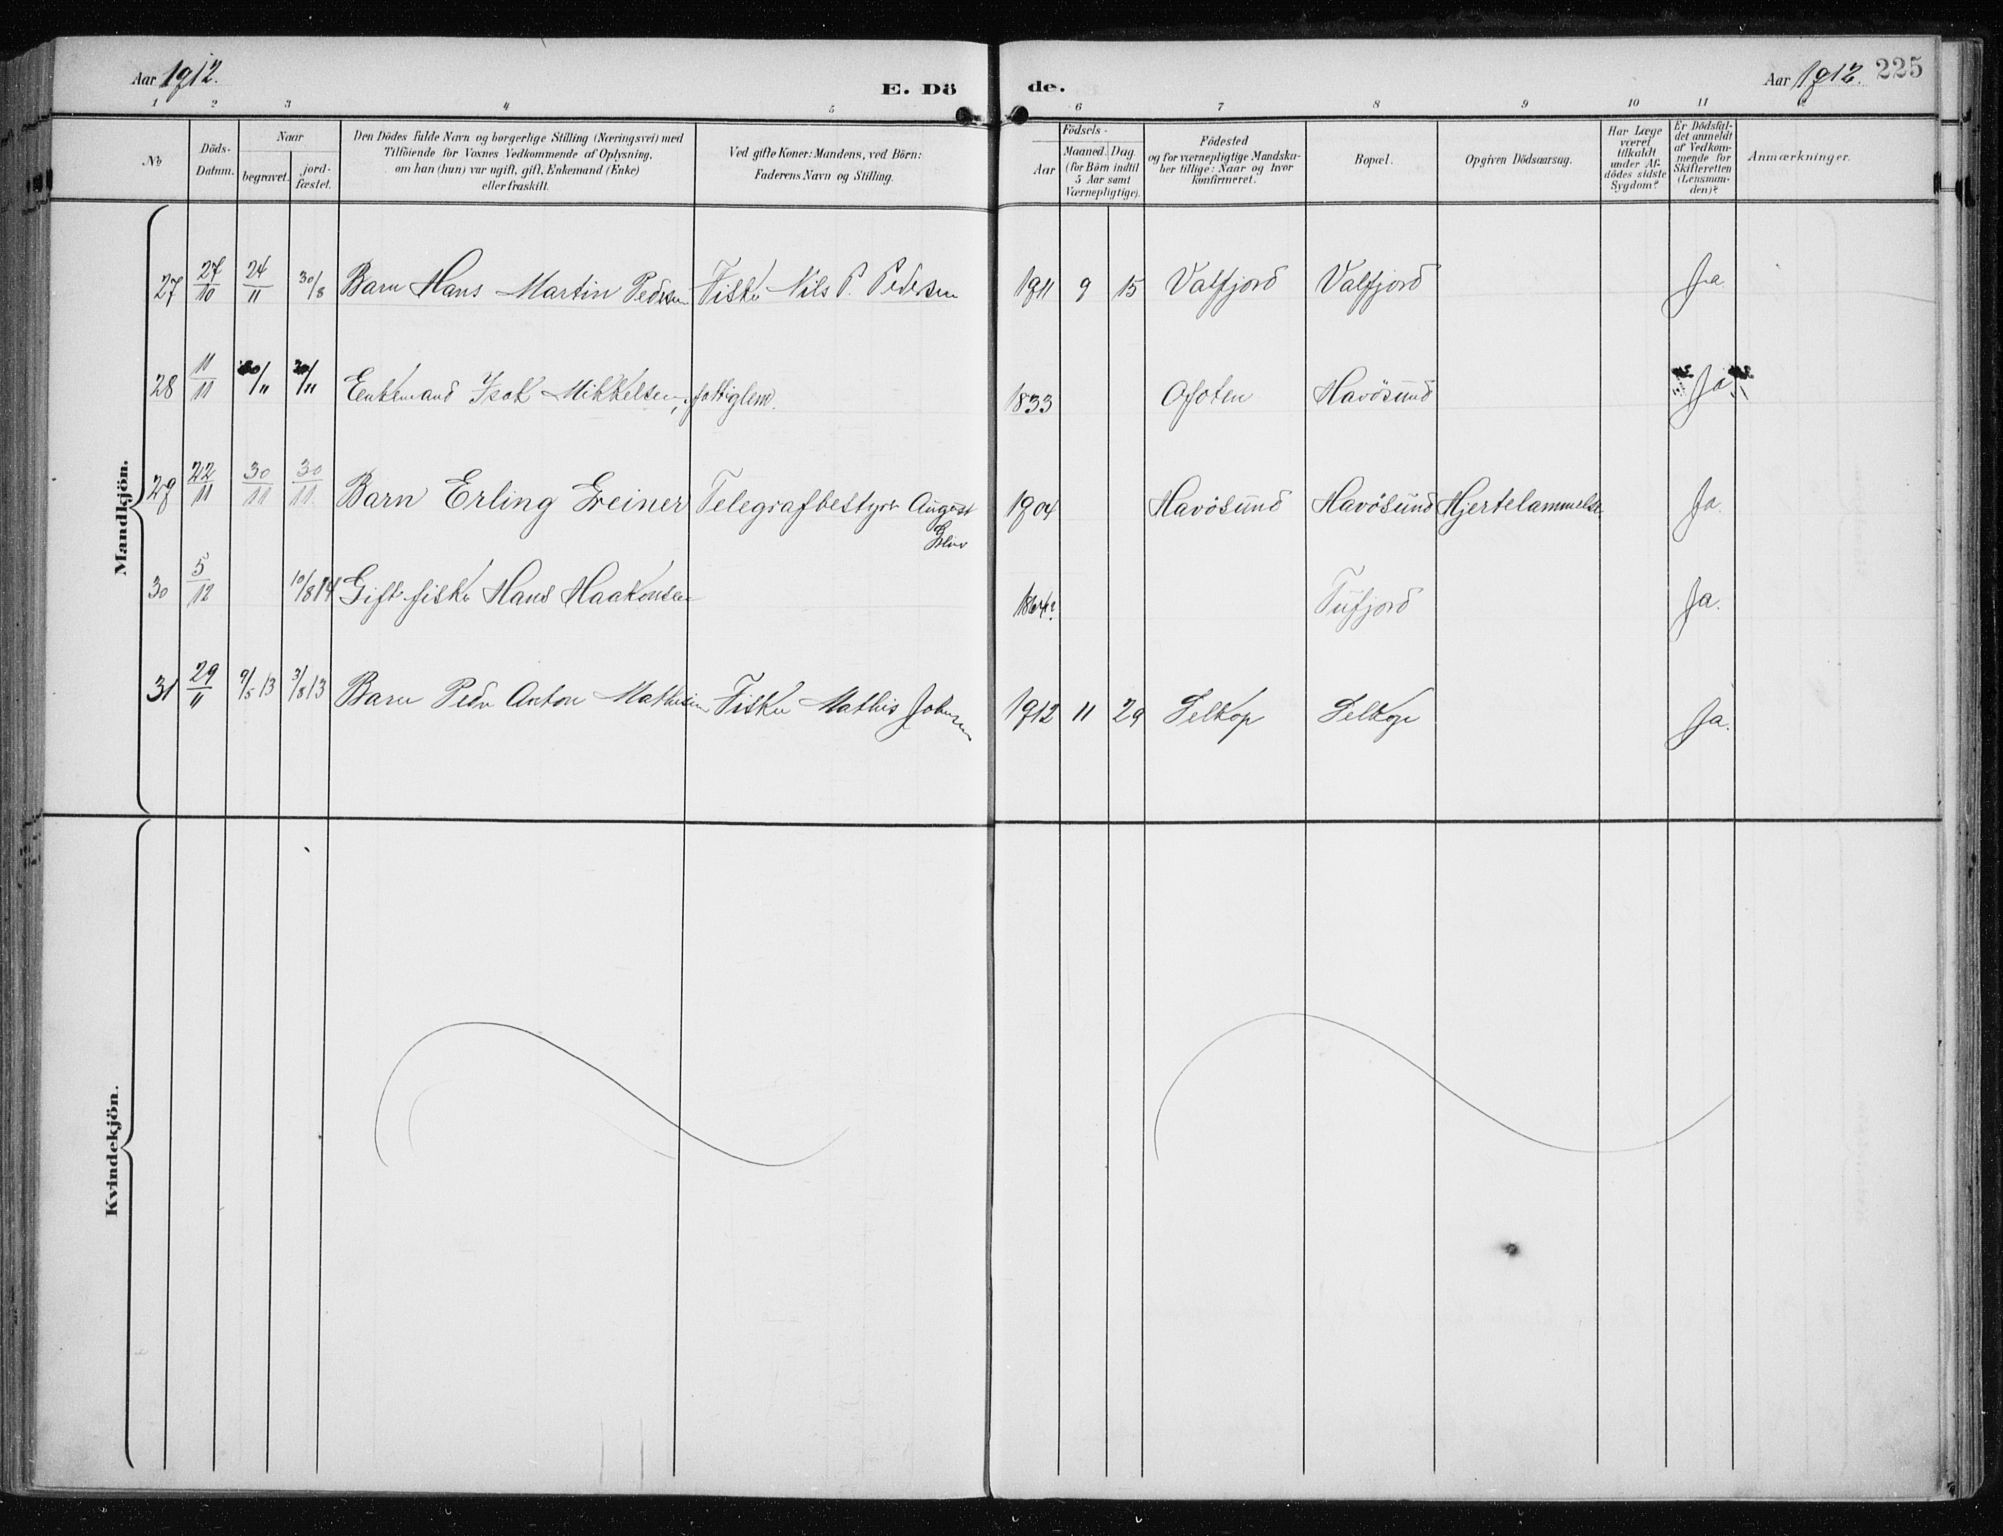 Aar 1912.
E. Dö
de.
Aar 1912. 225
1 2 3 4 5 6 7 8 9 10 11
No
Döds-
Datum.
Naar
begravet.
jord-
fæstet.
Den Dödes fulde Navn og borgerlige Stilling (Næringsvei) med
Tilföiende for Voxnes Vedkommende af Oplysning,
om han (hun) var ugift, gift, Enkemand (Enke)
eller fraskilt.
Ved gifte Koner: Mandens, ved Börn:
Faderens Navn og Stilling.
Födsels-
Aar
Maaned. Dag
(for Börn indtil
5 Aar samt
Værnepligtige).
Födested
og for værnepligtige Mandska-
ber tillige: Naar og hvor
konfirmeret.
Bopæl.
Opgiven Dödsaarsag.
Har Læge
været
tilkaldt
under Af-
dödes sidste
Sygdom?
Er Dödsfal-
det anmeldt
af Vedkom-
mende for
Skifteretten
(Lensman-
den)?
Anmærkninger.
Mandkjön.
27 27/10 24/11 30/8 Barn Hans Martin Pedersen Fisker Nils P. Pedersen 1911 9 15 Valfjord Valfjord Ja
28 11/11 30/11 30/11 Enkemand Isak Mikkelsen, fattiglem. 1833 Ofoten Havösund Ja
29 22/11 30/11 30/11 Barn Erling Greiner Telegrafbestyrer August 1904 Havösund Havösund Hjertelammelse Ja.
30 5/12 10/8 14 Gift fisker Hans Haakonsen 1864? Tufjord Ja.
31 29/11 9/5 13 3/8 13 Barn Peder Anton Mathisen Fisker Mathis Johnsen 1912 11 29 Selkop Selkop Ja.
Kvindekjön.